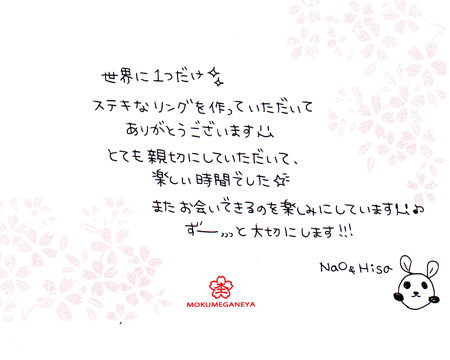 世界に1つだけ
ステキなリングを作っていただいて
ありがとうございます
とても親切にしていただいて、
楽しい時間でした
またお会いできるのを楽しみにしています♪
ずーっと大切にします!!!
NaO & Hisa
MOKUMEGANEYA